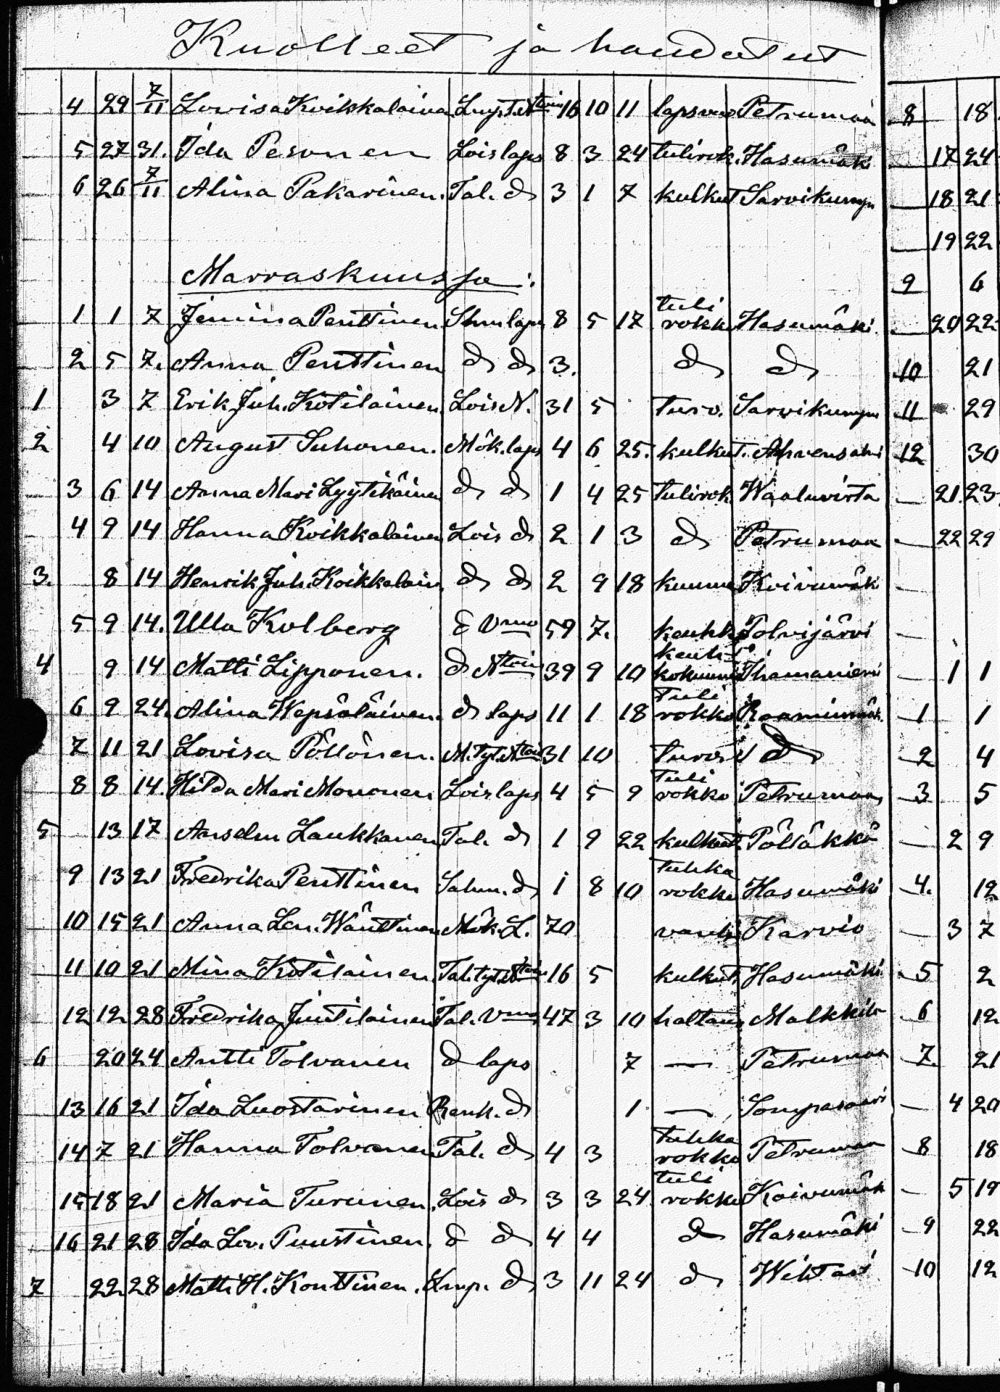 Kuolleet ja haudatut
4 29 7/11 Lovisa Koikkalainen 16 10 11 Petrumaa 8 18
5 27 31. Ida Pesonen Lois laps 8 3 24 tulirok. Hasumäki — 17 24
6 26 7/11 Alina Pakarinen. Tal. d 3 1 7 kulkut Sarvikump — 18 21
— 19 22
Marraskuussa: 9 6
1 1 7 Jemina Penttinen laps 8 5 17 tuli rokko Hasumäki — 20 22
2 5 7. Anna Penttinen d d 3. d d 10 21
1 3 7 Erik Juh. Kotilainen Lois N. 31 5 turv. Sarvikump 11 29
2 4 10 August Suhonen. Mök. laps 4 6 25. kulkut. Ahvensalmi 12 30
3 6 14 Anna Mari Lyytikäinen d d 1 4 25 tulirok. Waaluvirta — 21. 23
4 9 14 Hanna Koikkalainen Lois d 2 1 3 d Petrumaa — 22 29
3. 8 14 Henrik Juh. Koikkalain d d 2 9 18 kuume Koivumäk —
5 9 14. Ulla Kolberg d Vmo 59 7. keuhk. Polvijärvi —
4 9 14 Matti Lipponen. d 39 9 10 keuhkokuume Ihamaniemi — 1 1
6 9 24. Alina Wepsäläinen. d laps 11 1 18 tuli rokko —1 1
7 11 21 Lovisa Pöllönen. 31 10 d —2 4
8 8 14. Hilda Mari Mononen Lois laps 4 5 9 tuli rokko Petrumaa —3 5
5 13 17 Anselm Laukkanen Tal. d 1 9 22 kulkut. Pölläkkä — 2 9
9 13 21 Fredrika Penttinen d 1 8 10 tuhka rokko Hasumäki —4. 12
10 15 21 Anna Len. Wänttinen Mök. L. 70 vanh. Karvio — 3 7
11 10 21 Mina Kotilainen 16 5 kulkut. Hasumäki —5 2
12 12 28 Fredrika Juutilainen Tal. Vmo 47 3 10 Malkkila —6 12
6 20 24 Antti Tolvanen d laps 7 — Petrumaa —7. 21
13 16 21 Ida Luostarinen Renk. d 1 — Sompasaari — 4 20
14 7 21 Hanna Tolvanen Tal. d 4 3 tuhka rokko Petrumaa —8 18
15 18 21 Maria Turunen. Lois d 3 3 24 tuli rokko Koivumäk — 5 19
16 21 28 Ida Lov. Puustinen. d d 4 4 d Hasumäki —9 22
7 22 28 Matti H. Konttinen. d 3 11 24 d Wihtari —10 12